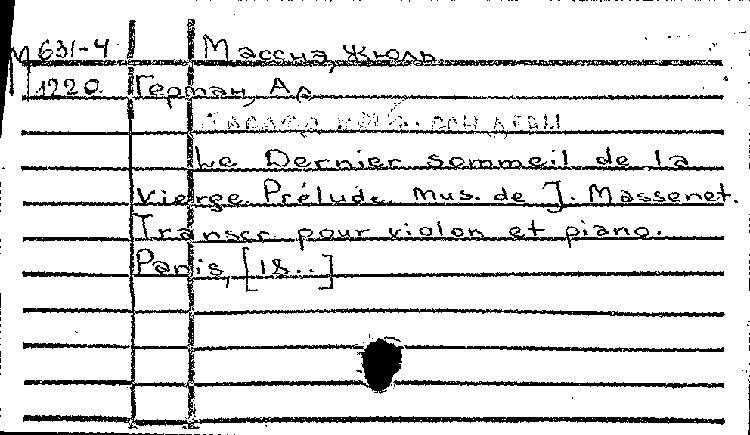 М 631-4 Массна, Жюль
1220 Герман, Ар
Le Dernier sommeil de la
vierge Prélude mus. de J. Massenet.
Transcr pour violon et piano.
Paris, [18..]